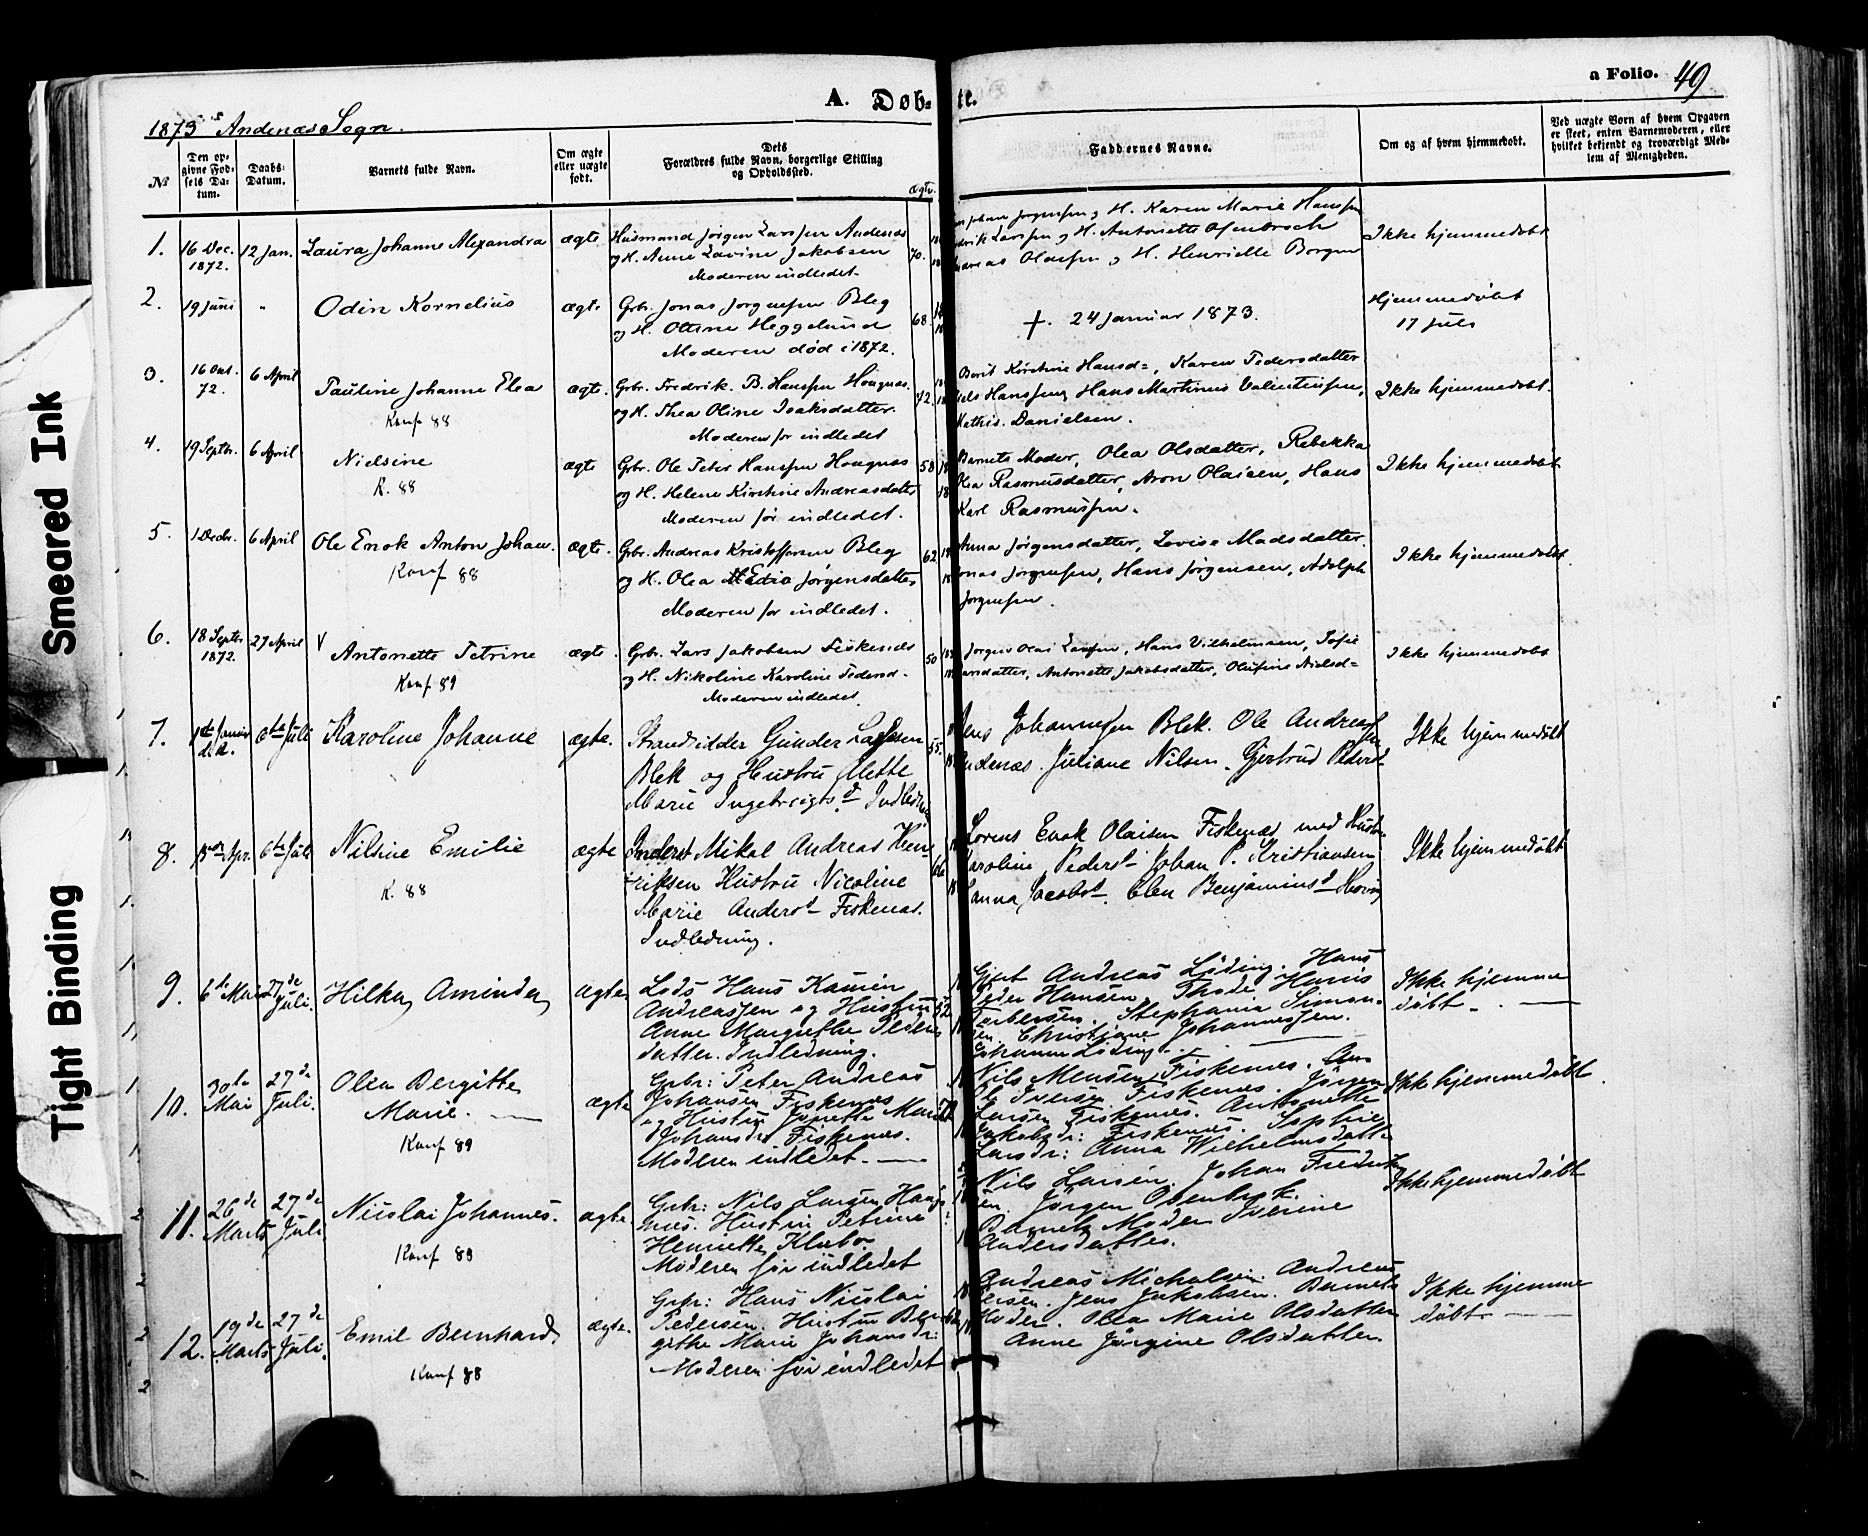 Smeared Ink
Tight Binding
A. Døb-te.
a Folio. 49
1873 Andenæs Sogn.
№
Den op-
givne Fød-
sels Da-
tum.
Daabs-
Datum.
Barnets fulde Navn.
Om ægte
eller uægte
født.
Dets
Forældres fulde Navn, borgerlige Stilling
og Opholdssted.
Faddernes Navne.
Om og af hvem hjemmedøbt.
Ved uægte Børn af hvem Opgaven
er skeet, enten Barnemoderen, eller
hvilket bekjendt og troværdigt Med-
lem af Menigheden.
1.
16 Dec.
1872.
12 Jan.
Laura Johanne Alexandra
ægte
Husmand Jørgen Larssen Andenæs
og H. Anne Lovine Jakobsen
Moderen indledet
70.
Johan Jørgensen og H. Karen Marie Hanssen
Larssen og H. Antoniette
Olaussen og H. Henriette Borgen
Ikke hjemmedøbt
2.
19 Juni
"
Odin Kornelius
ægte
Grbr. Jonas Jørgensen Bleg
og H. Oline Heggelund
Moderen død i 1872.
68.
†. 24 Januar 1873.
Hjemmedøbt
17 Juli
3.
16 Oct.
72.
6 April
Pauline Johanne Elea
Konf 88
ægte.
Grbr. Fredrik B. Hanssen Haugnæs
og H. Thea Oline Isaksdatter.
Moderen før indledet
72.
Berit Kirstine Hansd=, Karen Pedersdatter
Hanssen, Hans Martinus Valentinsen,
Mathis Danielsen.
Ikke hjemmedøbt.
4.
19 Septbr.
6 April
Nielsine
K. 88
ægte
Grbr. Ole Peter Hanssen Haugnæs
og H. Helene Kirstine Andreasdatter
Moderen før indledet.
58
Barnets Moder, Olea Olsdatter, Rebekka
Rasmusdatter, Aron Olaisen, Hans
Karl Rasmussen.
Ikke hjemmedøbt
5.
1 Decbr.
6 April
Ole Enok Anton Johan.
Konf 88
ægte.
Grbr. Andreas Kristoffersen Bleg
og H. Olea Jørgensdatter
Moderen før indledet.
62.
Anna Jørgensdatter, Lovise Madsdatter.
Jonas Jørgensen, Hans Jørgensen, Adolph
Jørgensen.
Ikke hjemmedøbt.
6.
18 Septbr
1872.
27 April
Antonette Petrine
Konf 89
ægte.
Grbr. Lars Jakobsen Fiskenes
og H. Nikoline Karoline Pedersd-
Moderen indledet
50
Jørgen Olai Larssen, Hans Vilhelmsen, Sofie
Larsdatter, Antonette Jakobsdatter, Olufine Nielsd=
Ikke hjemmedøbt
7.
1ste Januar
6te Juli
Karoline Johanne
ægte.
Strandsidder Gunder Larssen
Blek og Hustru Mette
Marie Ingebreigts d Indledning
55.
Jens Johannessen Blek. Ole Andreassen
Andenæs. Juliane Nilsen. Gjertrud Pedersd
Ikke hjemmedøbt
8.
13de Apr.
6te Juli
Nilsine Emilie
K. 88
ægte
Inderst Mikal Andreas Hen-
riksen Hustru Nicoline
Marie Andersd Fiskenæs.
Indledning.
66
Lorens Enok Olaisen Fiskenæs med Hustru
Karoline Pedersd Johan P. Kristiansen
Hanna Jacobsd. Elen Benjaminsd
Ikke hjemmedøbt
9.
6te Mai
27de
Juli.
Hilka Aminda
ægte
Lods Hans Kamin
Andreassen og Hustru
Anne Margrethe Peders
datter. Indledning.
Gjert Andreas Löding. Hans
Peder Hansen. Thode Hanis
Torbersen. Stephania Simon-
sen. Christiane Johannessen.
Johanna Löding.
Ikke hjemme
døbt.
10.
30te
Mai
27de
Juli.
Olea Bergitte
Marie.
Konf 89
ægte
Grbr: Peter Andreas
Johansen Fiskenes
og Hustru Janette
Johansdr Fiskenes.
Moderen indledet.
Nils Mensen Fiskenes.
Ole Iversen Fiskenes. Jörgen
Larsen Fiskenes. Antonette
Jakobsdr: Fiskenes. Sophie
Larsdr: Anna Wilhelmsdatter
Ikke hjemmedøbt
11.
26de
Marts
27de
Juli
Nicolai Johannes.
Konf 89
ægte.
Grbr: Nils Larsen Haug
næs. Hustru Petrine
Henriette Klæbo
Moderen før indledet
Nils Larsen. Johan Fredrik
sen. Jörgen Osenbrok.
Barnets Moder Iverine
Andersdatter.
Ikke hjemmedøbt
12.
19de
Marts
27de
Juli.
Emil Bernhard
Konf 88
ægte.
Grbr: Hans Nicolai
Pedersen. Hustru Ber
githe Marie Johansdr:
Moderen før indledet
Andreas Michalsen. Andreas
Jens Jakobsen. Barnets
Moder. Olea Marie Olsdatter
Anne Jörgine Olsdatter.
Ikke hjemme
døbt